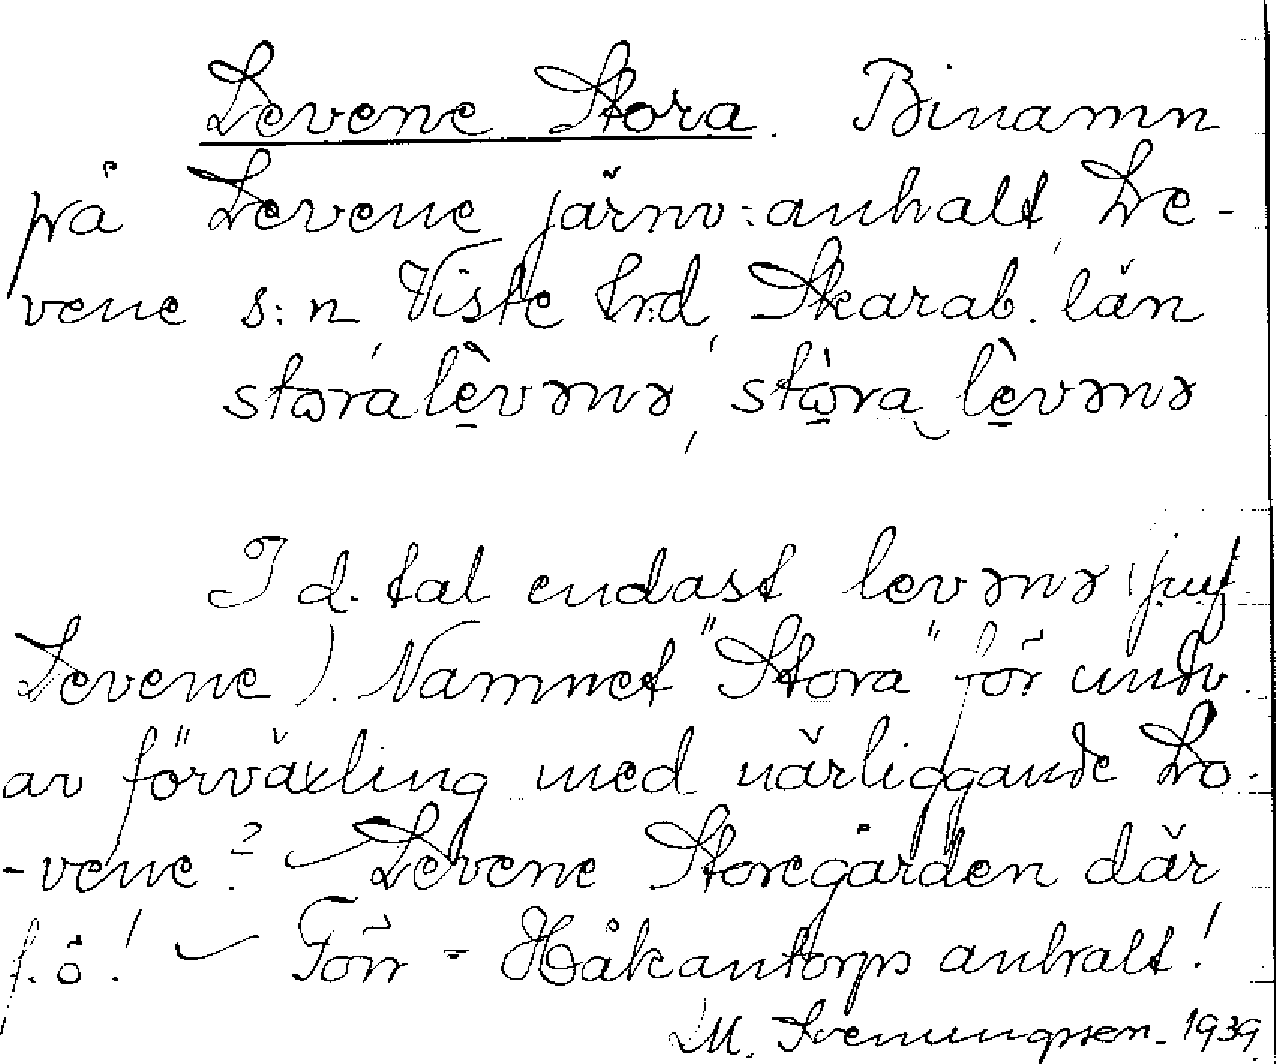 Levene Stora. Binamn
på Levene järnv:anhalt, Le-
vene s:n, Viste hrd, Skarab. län
storalèvənə, stòra lèvənə
I d. tal endast levənə (juf
Levene). Namnet "Stora" för undv.
av förväxling med närliggande Lo-
-vene? Levene Storegården där
f. ö.! Förr - Håkantorps anhalt!
M. Svenungsson. 1939.